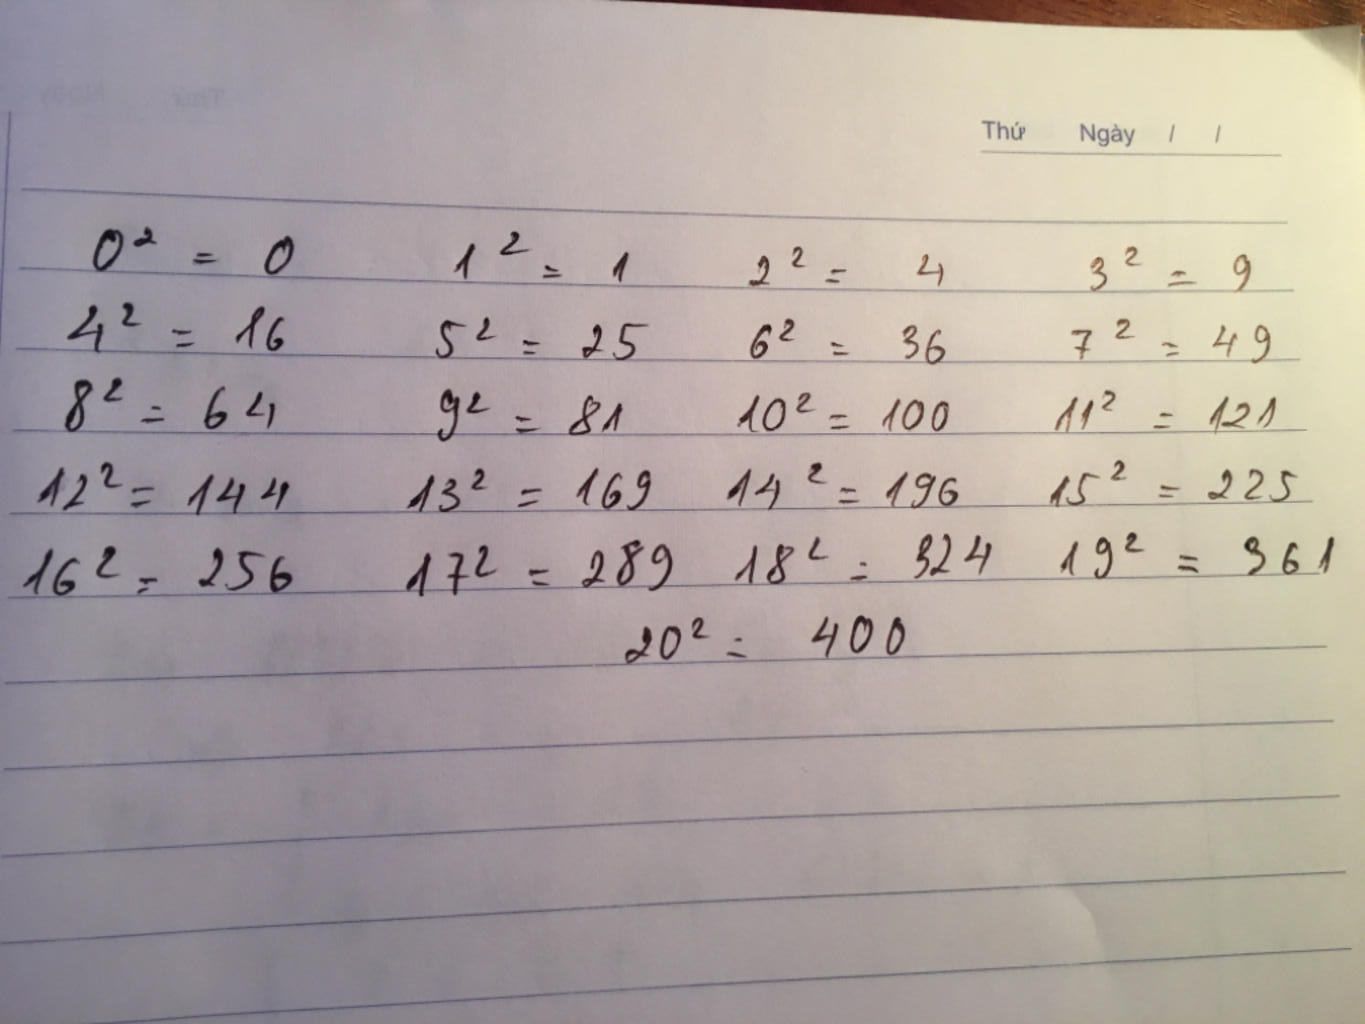 Thứ Ngày / /
0² = 0 1² = 1 2² = 4 3² = 9
4² = 16 5² = 25 6² = 36 7² = 49
8² = 64 9² = 81 10² = 100 11² = 121
12² = 144 13² = 169 14² = 196 15² = 225
16² = 256 17² = 289 18² = 324 19² = 361
20² = 400